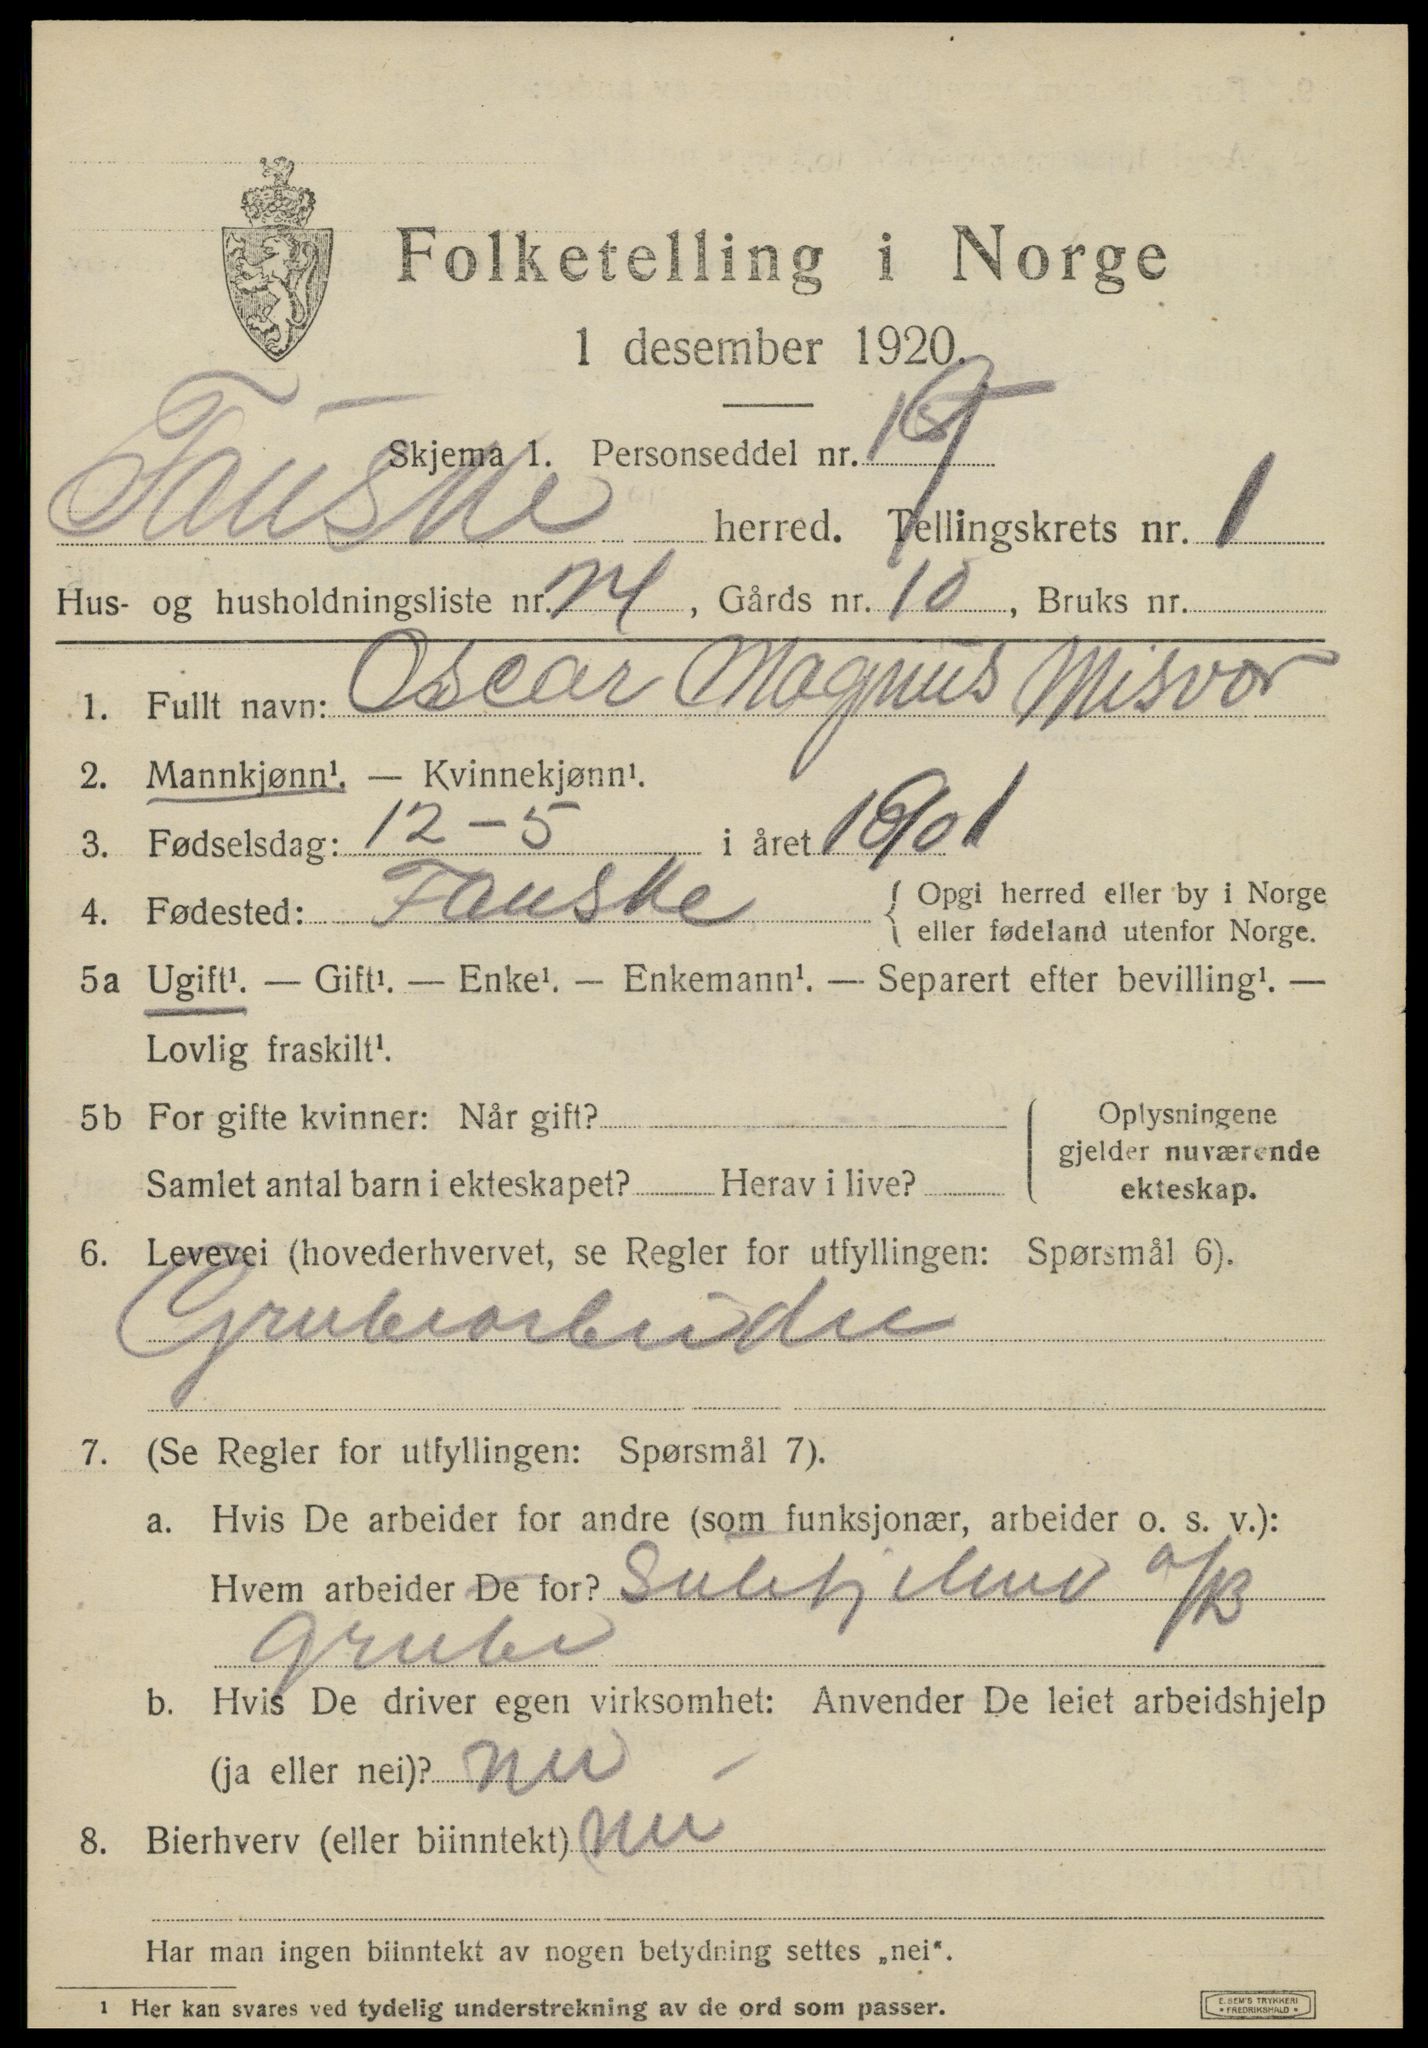 Folketelling i Norge
1 desember 1920.
Skjema 1. Personseddel nr.
Fauske herred. Tellingskrets nr. 1
Hus- og husholdningsliste nr. 14, Gårds nr. 10, Bruks nr.
1. Fullt navn: Oscar Magnus Misvær
2. Mannkjønn¹. — Kvinnekjønn¹.
3. Fødselsdag: 12-5 i året 1901
4. Fødested: Fauske { Opgi herred eller by i Norge
eller fødeland utenfor Norge.
5a Ugift¹. — Gift¹. — Enke¹. — Enkemann¹. — Separert efter bevilling¹. —
Lovlig fraskilt¹.
5b For gifte kvinner: Når gift?
Samlet antal barn i ekteskapet? Herav i live?
Oplysningene
gjelder nuværende
ekteskap.
6. Levevei (hovederhvervet, se Regler for utfyllingen: Spørsmål 6).
Grubearbeider
7. (Se Regler for utfyllingen: Spørsmål 7).
a. Hvis De arbeider for andre (som funksjonær, arbeider o. s. v.):
Hvem arbeider De for? Sulitjelma A/B
Grube
b. Hvis De driver egen virksomhet: Anvender De leiet arbeidshjelp
(ja eller nei)? nei –
8. Bierhverv (eller biinntekt) nei
Har man ingen biinntekt av nogen betydning settes „nei“.
1 Her kan svares ved tydelig understrekning av de ord som passer.
E. SEM'S TRYKKERI
• FREDRIKSHALD •